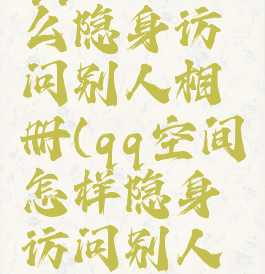 么隐身访
问别人相
册(qq空间
怎样隐身
访问别人